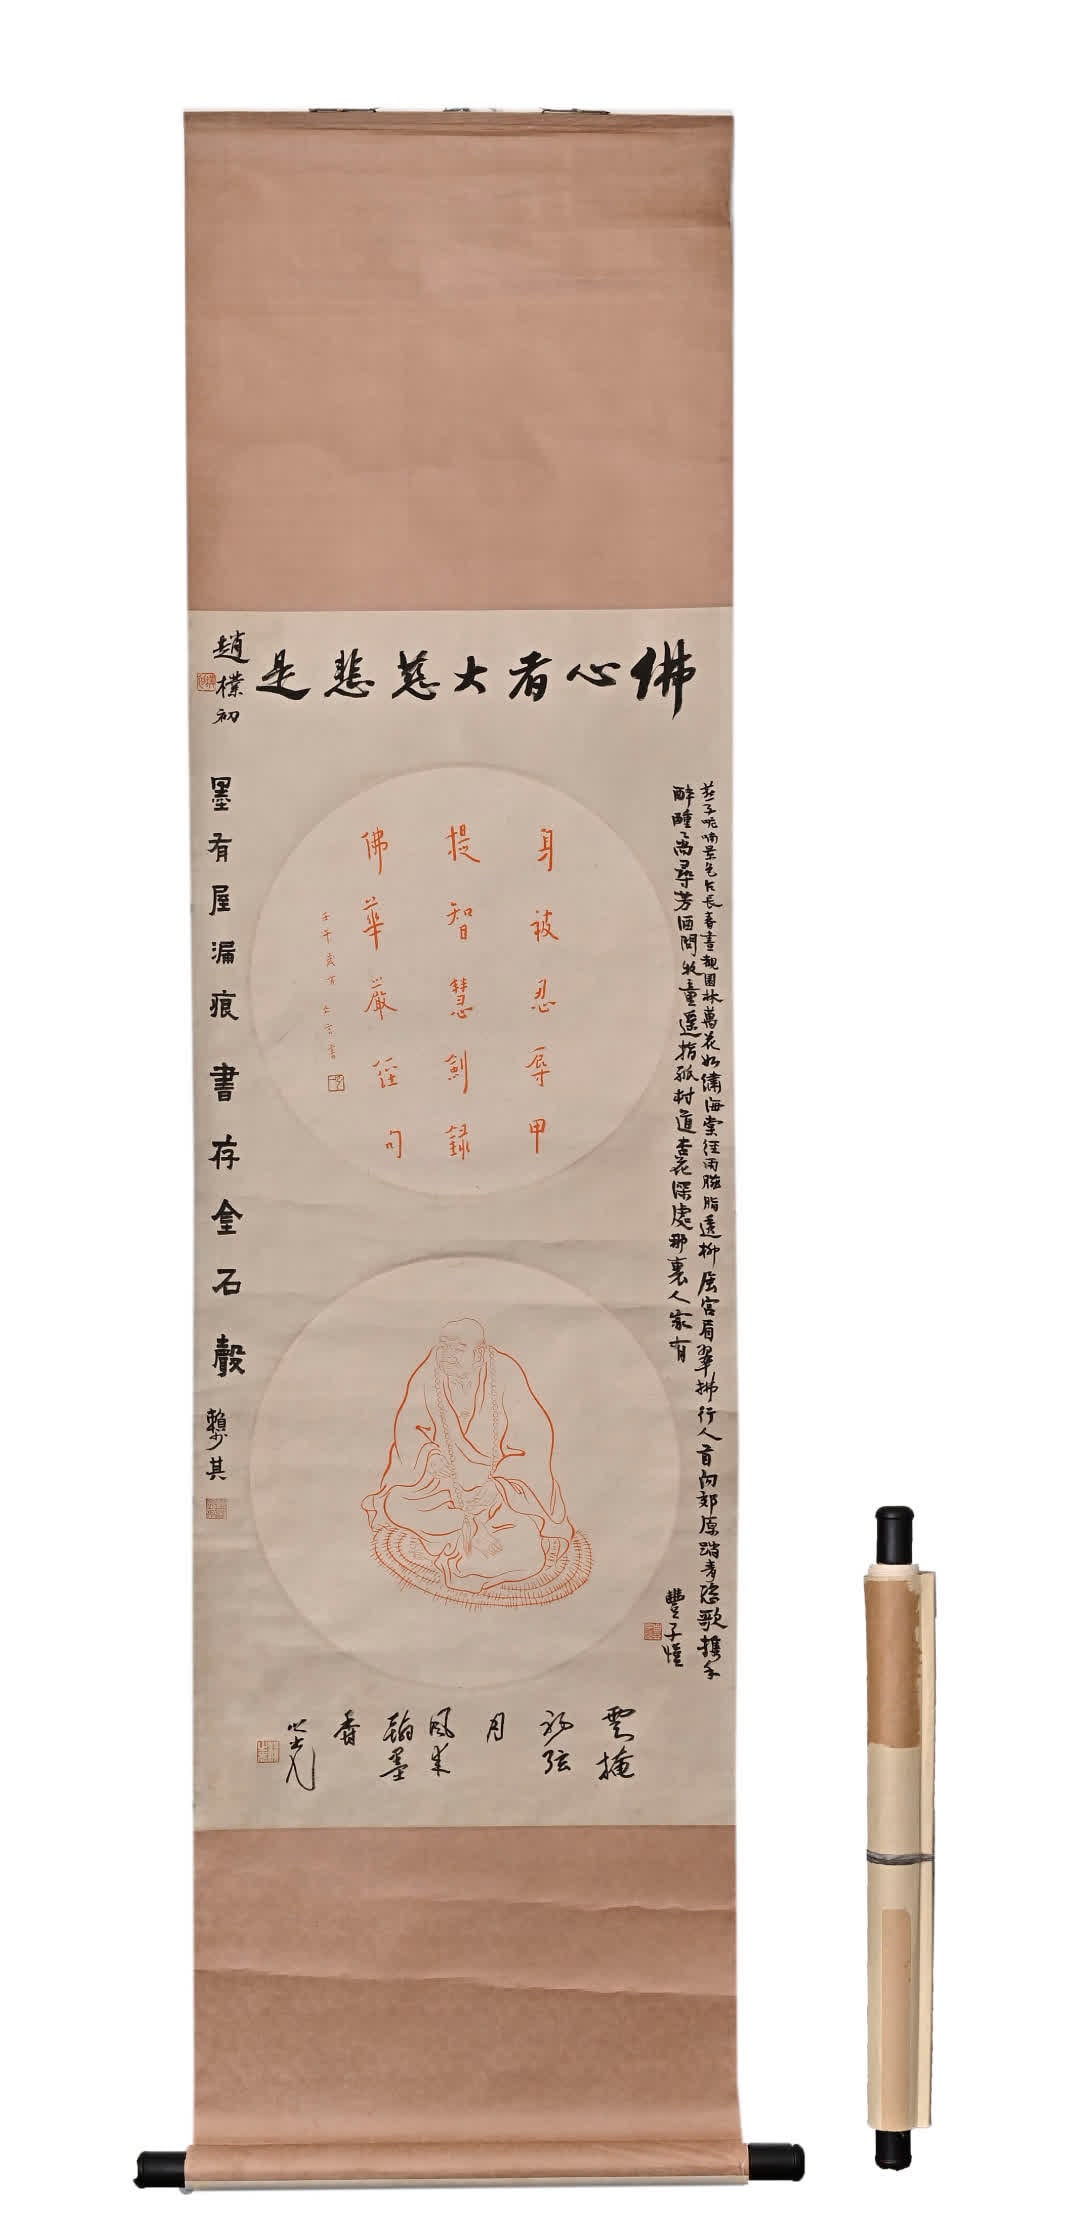 佛心者大慈悲是
趙樸初
燕子呢喃景色乍長春晝覩園林萬花如繡海棠經雨胭脂透柳展宮眉翠拂行人首向郊原踏青恣歌攜手
醉醺々尚尋芳酒問牧童遙指孤村道杏花深處那裏人家有
豐子愷
身被忍辱甲
提智慧劍錄
佛華嚴經句
壬午歲
墨有屋漏痕書存金石聲
賴少其
雲掩
初弦
月
風來
翰墨
香